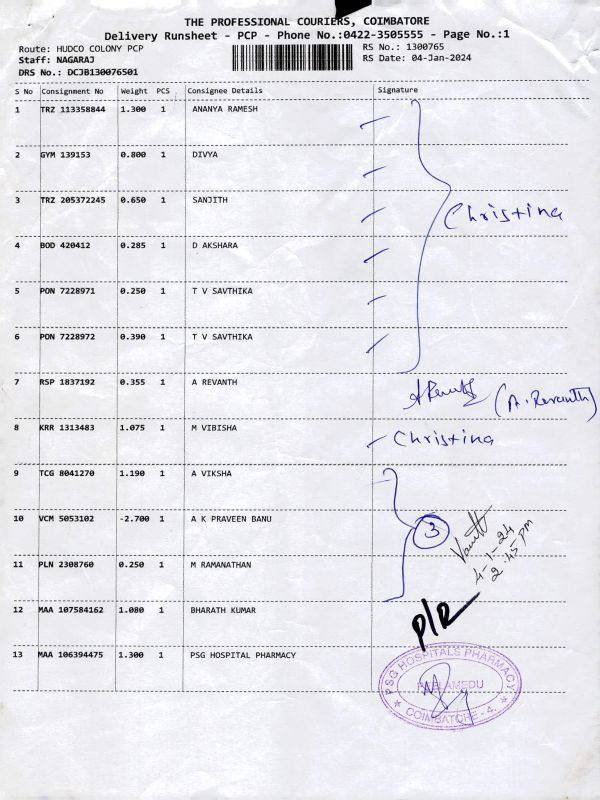 THE PROFESSIONAL COURIERS, COIMBATORE
Delivery Runsheet - PCP - Phone No.:0422-3505555 - Page No.:1
Route: HUDCO COLONY PCP RS No.: 1300765
Staff: NAGARAJ RS Date: 04-Jan-2024
DRS No.: DCJB130076501
S No Consignment No Weight PCS Consignee Details Signature
1 TRZ 113358844 1.300 1 ANANYA RAMESH
2 GYM 139153 0.800 1 DIVYA
3 TRZ 205372245 0.650 1 SANJITH
Christina
4 BOD 420412 0.285 1 D AKSHARA
5 PON 7228971 0.250 1 T V SAVTHIKA
6 PON 7228972 0.390 1 T V SAVTHIKA
7 RSP 1837192 0.355 1 A REVANTH
(A. Revanth)
8 KRR 1313483 1.075 1 M VIBISHA
Christina
9 TCG 8041270 1.190 1 A VIKSHA
10 VCM 5053102 -2.700 1 A K PRAVEEN BANU
3
4-1-24
2.45 PM
11 PLN 2308760 0.250 1 M RAMANATHAN
12 MAA 107584162 1.080 1 BHARATH KUMAR
P/R
13 MAA 106394475 1.300 1 PSG HOSPITAL PHARMACY
PSG HOSPITALS PHARMACY
PEELAMEDU
COIMBATORE - 4.